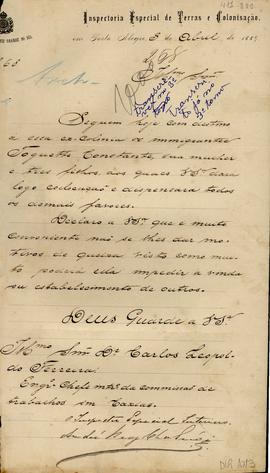 Inspectoria Especial de Terras e Colonisação.
em Porto Alegre, 8 de Abril de 1889
Seguem hoje com destino
a essa ex-colonia os immigrantes
Constante, sua mulher
e tres filhos, aos quaes VSª dará
logo collocação e dispensará todos
os demais favores.
Declaro a VSª que é muito
conveniente não se lhes dar mo-
tivos de queixa visto como
poderá ella impedir a vinda
seu estabelecimento de outros.
Deus Guarde a VSª
Illmo Snr Dr Carlos Leopol-
do Ferreira
Engº Chefe da commissão de
trabalhos em Caxias.
O Inspector Especial Interino